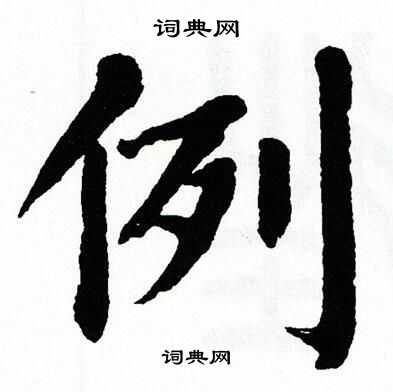 词典网
例
词典网